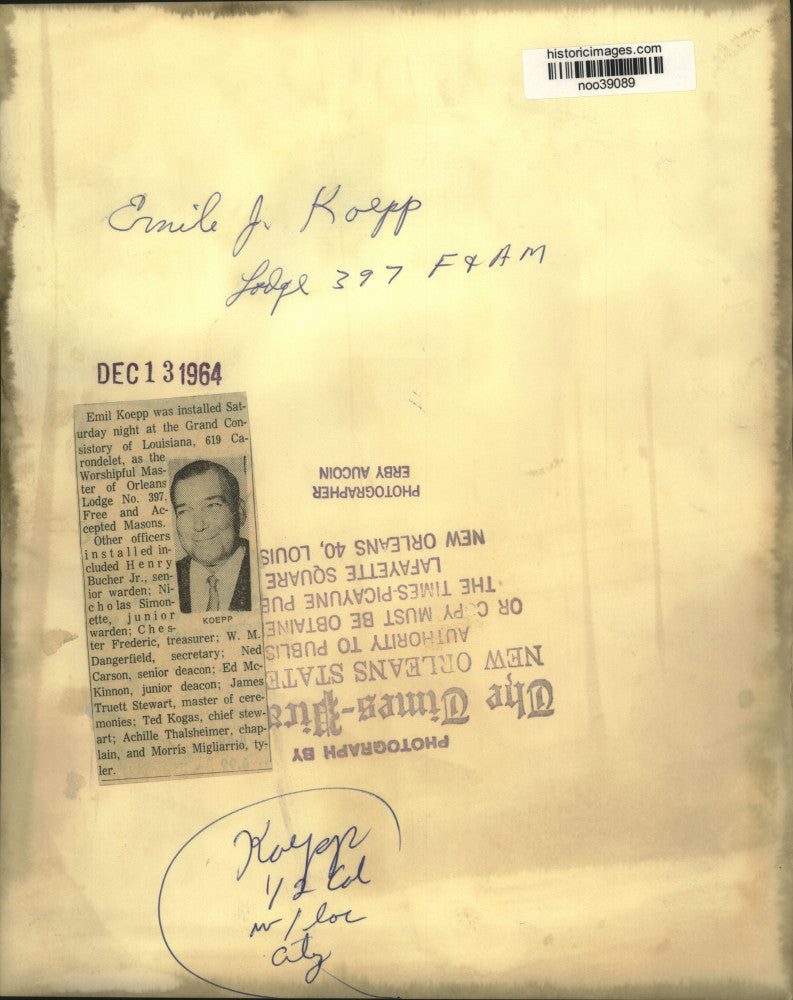 historicimages.com
noo39089
Emile J. Koepp
Lodge 397 F & A M
DEC 13 1964
Emil Koepp was installed Sat-
urday night at the Grand Con-
sistory of Louisiana, 619 Ca-
rondelet, as the
Worshipful Mas-
ter of Orleans
Lodge No. 397,
Free and Ac-
cepted Masons.
Other officers
installed in-
cluded Henry
Bucher Jr., sen-
ior warden; Ni-
cholas Simon-
ette, junior
warden; Ches-
ter Frederic, treasurer; W. M.
Dangerfield, secretary; Ned
Carson, senior deacon; Ed Mc-
Kinnon, junior deacon; James
Truett Stewart, master of cere-
monies; Ted Kogas, chief stew-
art; Achille Thalsheimer, chap-
lain, and Morris Migliarrio, ty-
ler.
KOEPP
PHOTOGRAPH BY
The Times-Pica
NEW ORLEANS STATE
AUTHORITY TO PUBLIS
OR COPY MUST BE OBTAINE
THE TIMES-PICAYUNE PUB
LAFAYETTE SQUARE
NEW ORLEANS 40, LOUIS
PHOTOGRAPHER
ERBY AUCOIN
Koepp
1/2 Col
w/loc
city